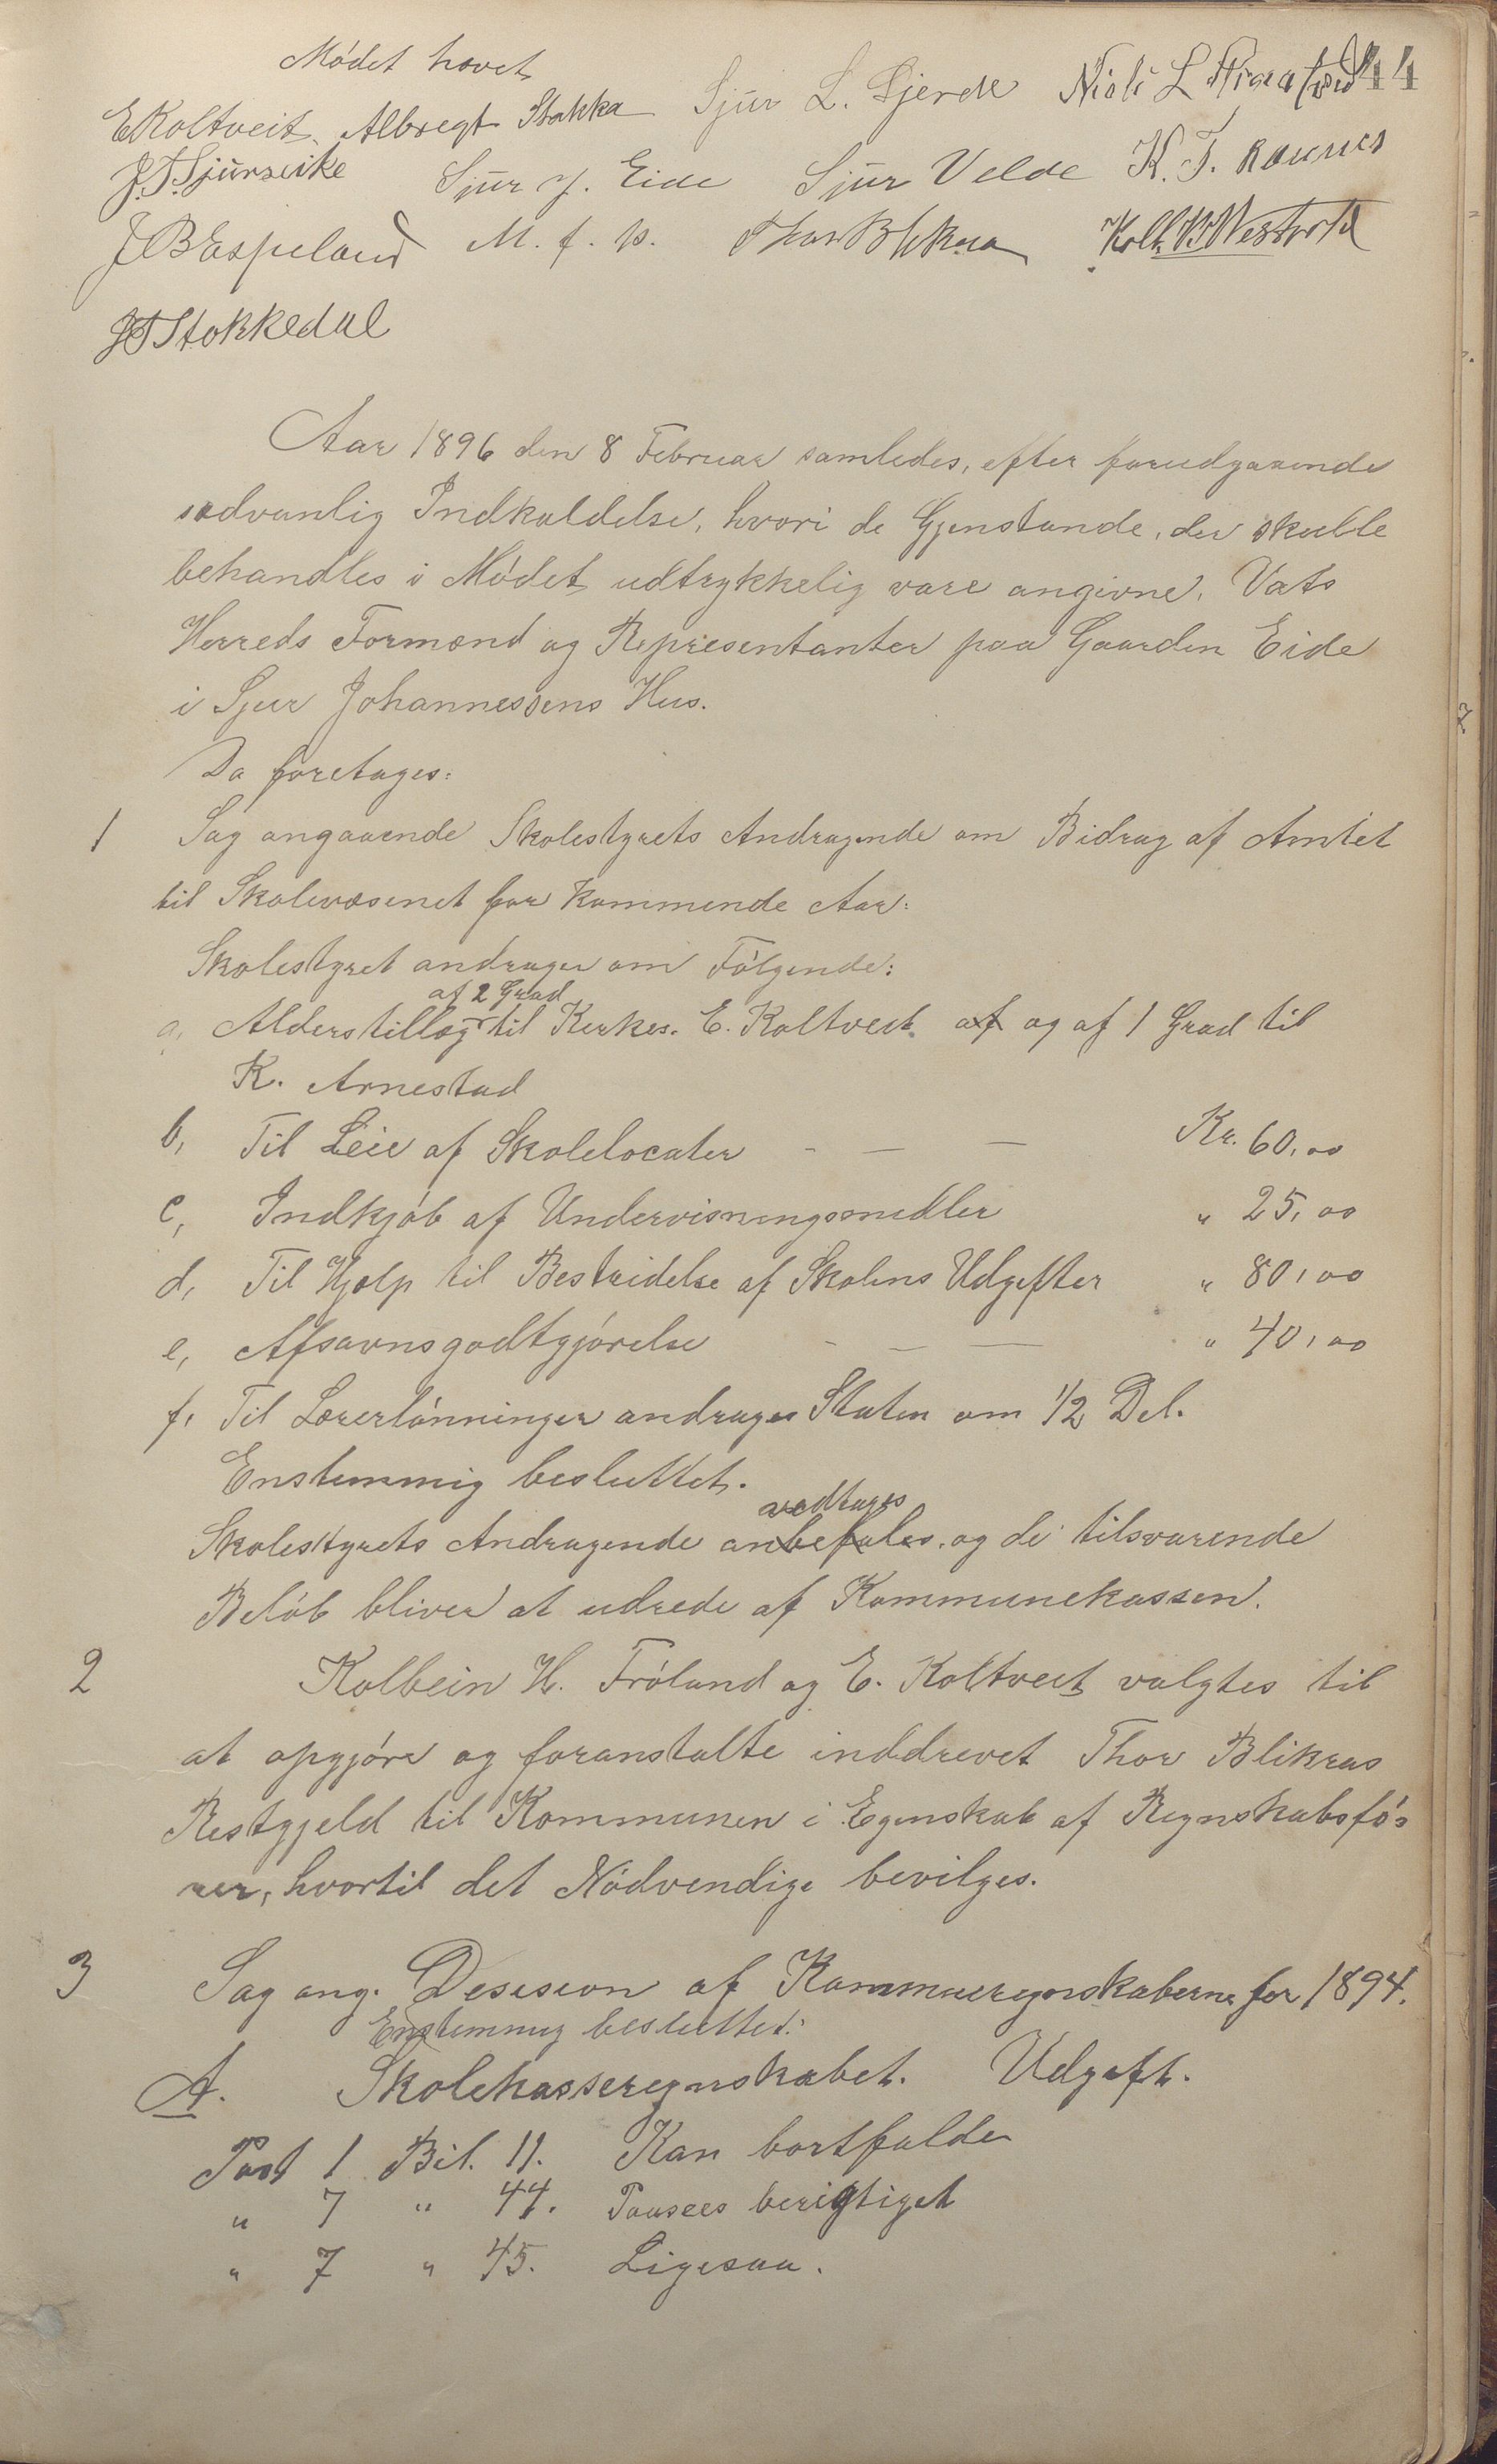 44
Mödet hævet
EKoltveit. Albregt Stakka Sjur L. Gjerde Niels L
J. T. Sjursvike Sjur J. Eide Sjur Velde K. T. Raunes
J B Espeland M. f. P. Thor Blikraa
JTStokkedal
Aar 1896 den 8 Februar samledes, efter forudgaaende
sædvanlig Indkaldelse, hvori de Gjenstande, der skulle
behandles i Mödet udtrykkelig vare angivne, Vats
Herreds Formænd og Representanter paa Gaarden Eide
i Sjur Johannessens Hus.
Da foretages:
1 Sag angaaende Skolestyrets Andragende om Bidrag af Amtet
til Skolevæsenet for kommende Aar:
Skolestyret andrager om Fölgende:
af 2 Grad
a, Alderstillæg til Kirkes. E. Koltveit af og af 1 Grad til
K. Arnestad
b, Til Leie af Skolelocaler - — — Kr. 60,00
c, Indkjöb af Undervisningsmidler " 25,00
d, Til Hjælp til Bestridelse af Skolens Udgifter " 80,00
e, Afsavnsgodtgjörelse - — — " 40,00
f, Til Lærerlönninger andrages Staten om 1/2 Del.
Enstemmig besluttet.
vedtages
Skolestyrets Andragende anbefales, og de tilsvarende
Belöb bliver at udrede af Kommunekassen.
2 Kolbein H. Fröland og E. Koltveit valgtes til
at opgjöre og foranstalte inddrevet Thor Blikraas
Restgjeld til Kommunen i Egenskab af Regnskabsfö-
rer, hvortil det Nödvendige bevilges.
3 Sag ang. Desision af Kommuneregnskaberne for 1894.
Enstemmig besluttet:
A. Skolekasseregnskabet. Udgift.
Post 1 Bil. 11. Kan bortfalde
" 7 " 44. Paasees berigtiget
" 7 " 45. Ligesaa.